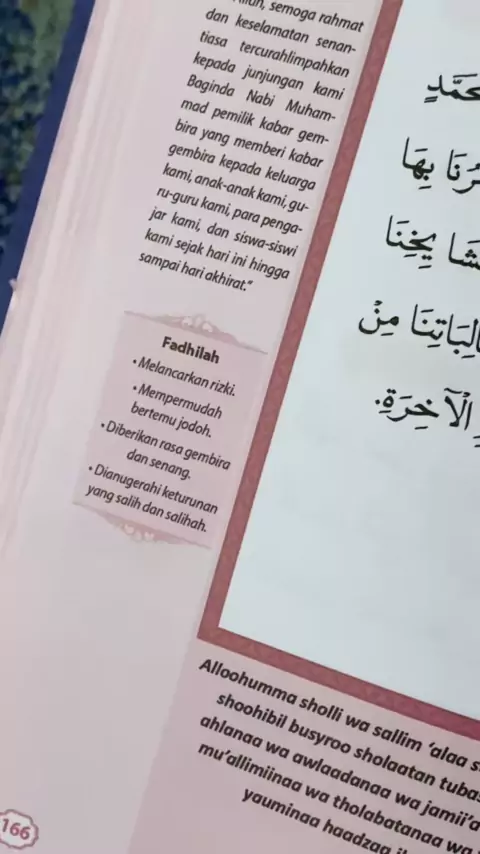 semoga rahmat
dan keselamatan senan-
tiasa tercurahlimpahkan
kepada junjungan kami
Baginda Nabi Muham-
mad pemilik kabar gem-
bira yang memberi kabar
gembira kepada keluarga
kami, anak-anak kami, gu-
ru-guru kami, para penga-
jar kami, dan siswa-siswi
kami sejak hari ini hingga
sampai hari akhirat."
Fadhilah
• Melancarkan rizki.
• Mempermudah
bertemu jodoh.
• Diberikan rasa gembira
dan senang.
• Dianugerahi keturunan
yang salih dan salihah.
بِهَا
يِخِنَا
مِنْ
الْآخِرَةِ.
Alloohumma sholli wa sallim 'alaa
shoohibil busyroo sholaatan
ahlanaa wa awlaadanaa wa jamii'a
mu'allimiinaa wa tholabatanaa wa
yauminaa haadzaa
166